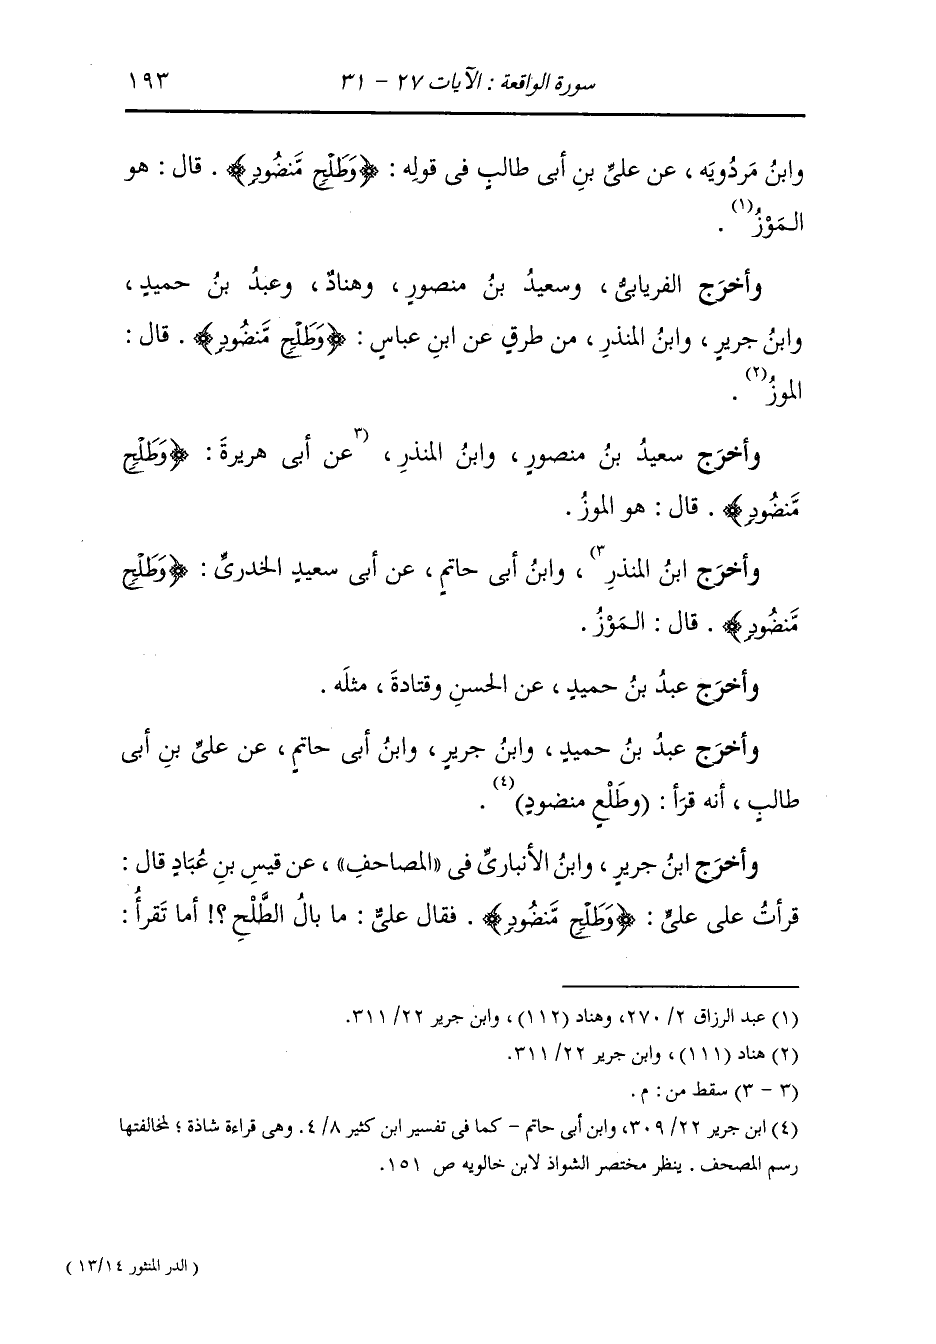 سورة الواقعة : الآيات ٢٧ - ٣١ ١٩٣
وابنُ مَردُويَه ، عن عليِّ بنِ أبى طالبٍ فى قولِه : ﴿وَطَلْحٍ مَّنضُودٍ﴾ . قال : هو
المَوْزُ(١) .
وأخرَج الفريابىُّ ، وسعيدُ بنُ منصورٍ ، وهنادٌ ، وعبدُ بنُ حميدٍ ،
وابنُ جريرٍ ، وابنُ المنذرِ ، من طرقٍ عن ابنِ عباسٍ : ﴿وَطَلْحٍ مَّنضُودٍ﴾ . قال :
الموزُ(٢) .
وأخرَج سعيدُ بنُ منصورٍ ، وابنُ المنذرِ ، ٣)عن أبى هريرةَ : ﴿وَطَلْحٍ
مَّنضُودٍ﴾ . قال : هو الموزُ .
وأخرَج ابنُ المنذرِ(٣ ، وابنُ أبى حاتمٍ ، عن أبى سعيدٍ الخدرىِّ : ﴿وَطَلْحٍ
مَّنضُودٍ﴾ . قال : المَوْزُ .
وأخرَج عبدُ بنُ حميدٍ ، عن الحسنِ وقتادةَ ، مثلَه .
وأخرَج عبدُ بنُ حميدٍ ، وابنُ جريرٍ ، وابنُ أبى حاتمٍ ، عن علىِّ بنِ أبى
طالبٍ ، أنه قرَأ : (وطَلْعٍ منضودٍ)(٤) .
وأخرَج ابنُ جريرٍ ، وابنُ الأنبارىِّ فى «المصاحفِ» ، عن قيسِ بنِ عُبَادٍ قال :
قرأتُ على علىٍّ : ﴿وَطَلْحٍ مَّنضُودٍ﴾ . فقال علىٌّ : ما بالُ الطَّلْحِ ؟! أما تَقرأُ :
(١) عبد الرزاق ٢/ ٢٧٠، وهناد (١١٢) ، وابن جرير ٢٢/ ٣١١.
(٢) هناد (١١١) ، وابن جرير ٢٢/ ٣١١.
(٣ - ٣) سقط من : م .
(٤) ابن جرير ٢٢/ ٣٠٩، وابن أبى حاتم - كما فى تفسير ابن كثير ٨/ ٤. وهى قراءة شاذة ؛ لمخالفتها
رسم المصحف . ينظر مختصر الشواذ لابن خالويه ص ١٥١.
( الدر المنثور ١٣/١٤ )